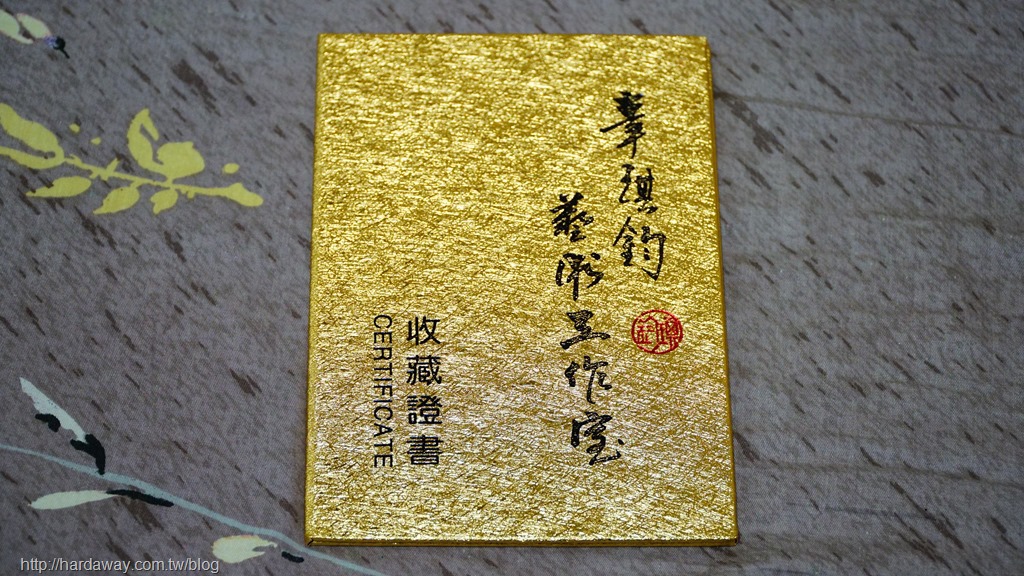 韋琪鈞
藝術工作室
收藏證書
CERTIFICATE
http://hardaway.com.tw/blog